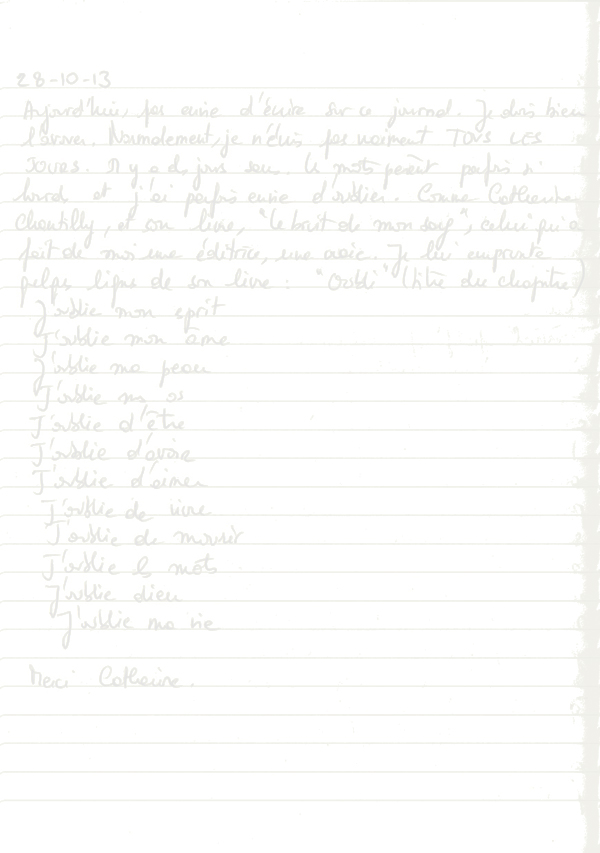 28-10-13
Aujourd'hui, pas envie d'écrire sur ce journal. Je dois bien
l'avouer. Normalement, je n'écris pas vraiment TOUS LES
JOURS. Il y a des jours sans. Les mots pèsent parfois si
lourds et j'ai parfois envie d'oublier. Comme Catherine
Chantilly, et son livre, "le bruit de mon sang", celui qui a
fait de moi une éditrice, une vraie. Je lui emprunte
quelques lignes de son livre : "Oubli" (titre du chapitre)
J'oublie mon esprit
J'oublie mon âme
J'oublie ma peau
J'oublie mes os
J'oublie d'être
J'oublie d'avoir
J'oublie d'aimer
J'oublie de vivre
J'oublie de mourir
J'oublie les mots
J'oublie dieu
J'oublie ma vie
Merci Catherine.